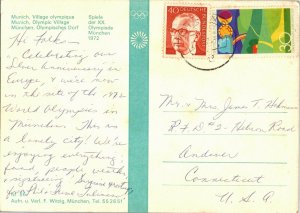 Munich, Village olympique
Munich, Olympic Village
München, Olympisches Dorf
Spiele
der XX.
Olympiade
München
1972
Hi Folks —
Celebrating our
Silver Anniversary in
Europe, & we're now
in the site of the 1972
World Olympics in
München. This is
a lovely city! We're
enjoying everything
food, people, weather,
sightseeing
Aufn. u. Verl. F. Witzig, München, Tel. 55 26 51
40
DEUTSCHE
30
Mr. & Mrs. Jones T. Holmes
R.F.D. #2 - Hebron Road
Andover
Connecticut
U.S.A.